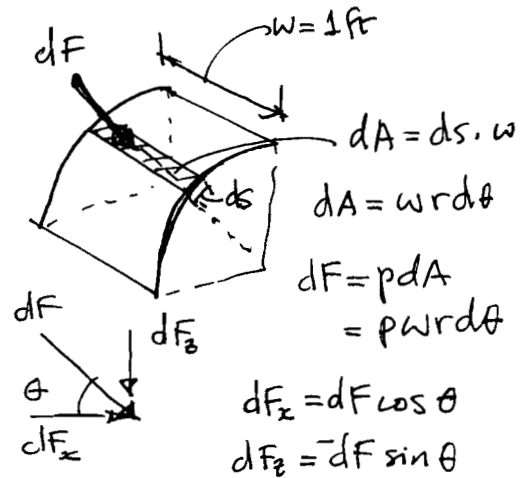 w = 1 ft
dF
dA = ds . w
ds
dA = w r dθ
dF = p dA
= p w r dθ
dF
dFz
θ
dFx
dFx = dF cos θ
dFz = -dF sin θ